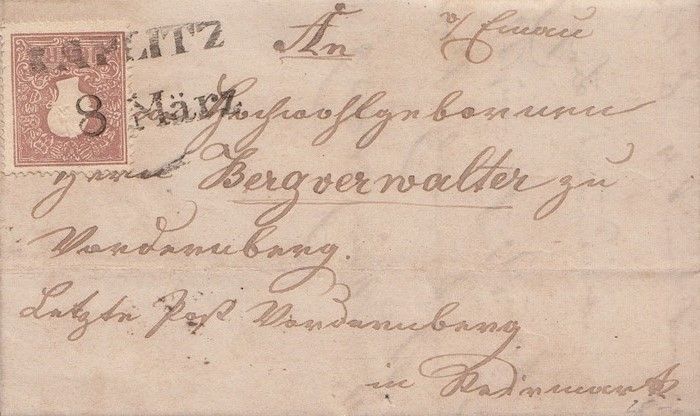 KAPLITZ
8 März
An
Hochwohlgebornen
Herrn Bergverwalter zu
Vordernberg.
Letzte Post Vordernberg
in Steiermark.